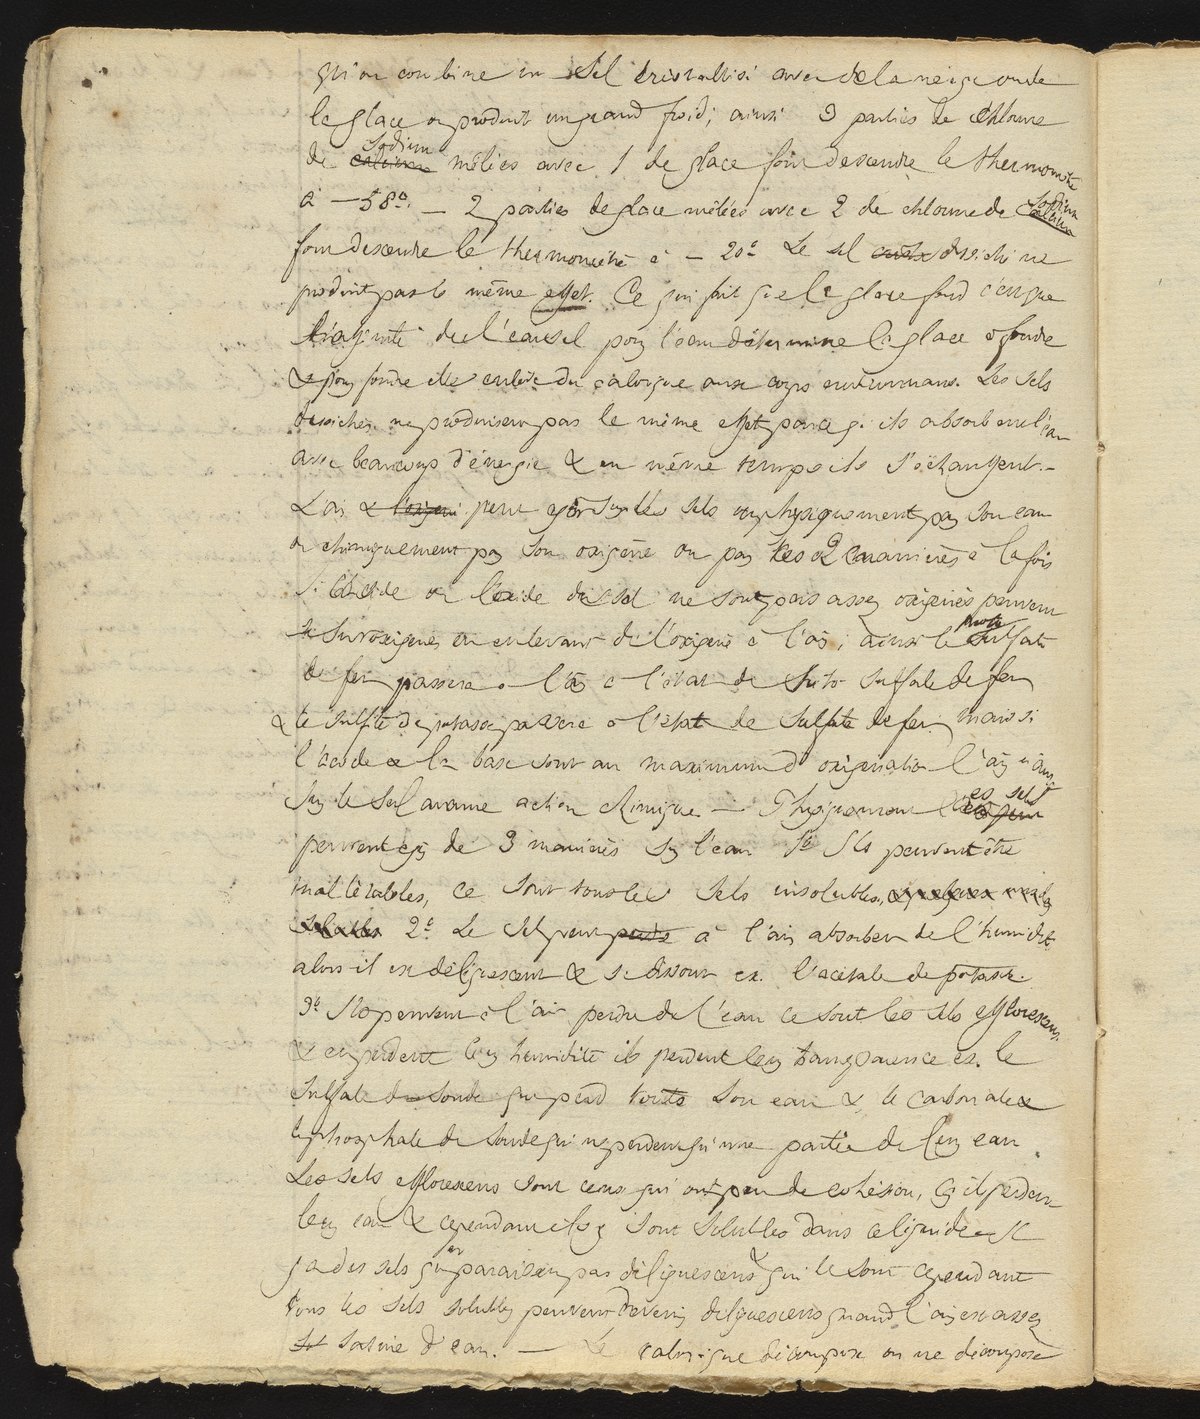 qu'on combine un sel cristallisé avec de la neige ou de
la glace on produit un grand froid; ainsi 3 parties de chlorure
de sodium mêlées avec 1 de glace font descendre le thermomètre
à – 58°. – 2 parties de glace mêlées avec 2 de chlorure de sodium
font descendre le thermomètre à – 20° Le sel desséché ne
produit pas le même effet. Ce qui fait que la glace fond c'est que
de l'eau sel pour l'eau détermine la glace à fondre
& pour fondre elle enlève du calorique aux corps environnans. Les sels
desséchés ne produisent pas le même effet parceq. ils absorbent l'eau
avec beaucoup d'énergie & en même temps ils s'échauffent. –
L'air peut agir sur les sels ou physiquement par son eau
ou chimiquement par son oxigène ou par les 2 manières à la fois
Si l'acide ou l'oxide du sel ne sont pas assez oxigénés peuvent
se suroxigener en enlevant de l'oxigene à l'air; ainsi le proto sulfate
de fer passera à l'air à l'état de trito sulfate de fer
& le sulfite de potasse passera à l'état de sulfate de fer, mais si
l'acide & la base sont au maximum d'oxigenation l'air n'aura
sur le sel aucune action chimique – Physiquement les sels
peuvent agir de 3 manières sur l'eau 1° Ils peuvent être
inaltérables, ce sont tous les sels insolubles,
2° Le sel peut à l'air absorber de l'humidité
alors il est déliquescent & se dissout ex. l'acétate de potasse.
3° Ils peuvent à l'air perdre de l'eau ce sont les sels efflorescens
& en perdent leur humidité ils perdent leur transparence ex. le
sulfate de soude qui perd toute son eau & le carbonate &
le phosphate de soude qui ne perdent qu'une partie de leur eau.
Les sels efflorescens sont ceux qui ont peu de cohésion, car il perdent
leur eau & cependant ils y sont solubles dans ce liquide – Il
y a des sels qui ne paraissent pas déliquescens & qui le sont cependant
tous les sels solubles peuvent devenir déliquescens quand l'air est assez
saturé d'eau. – Le calorique décompose ou ne décompose